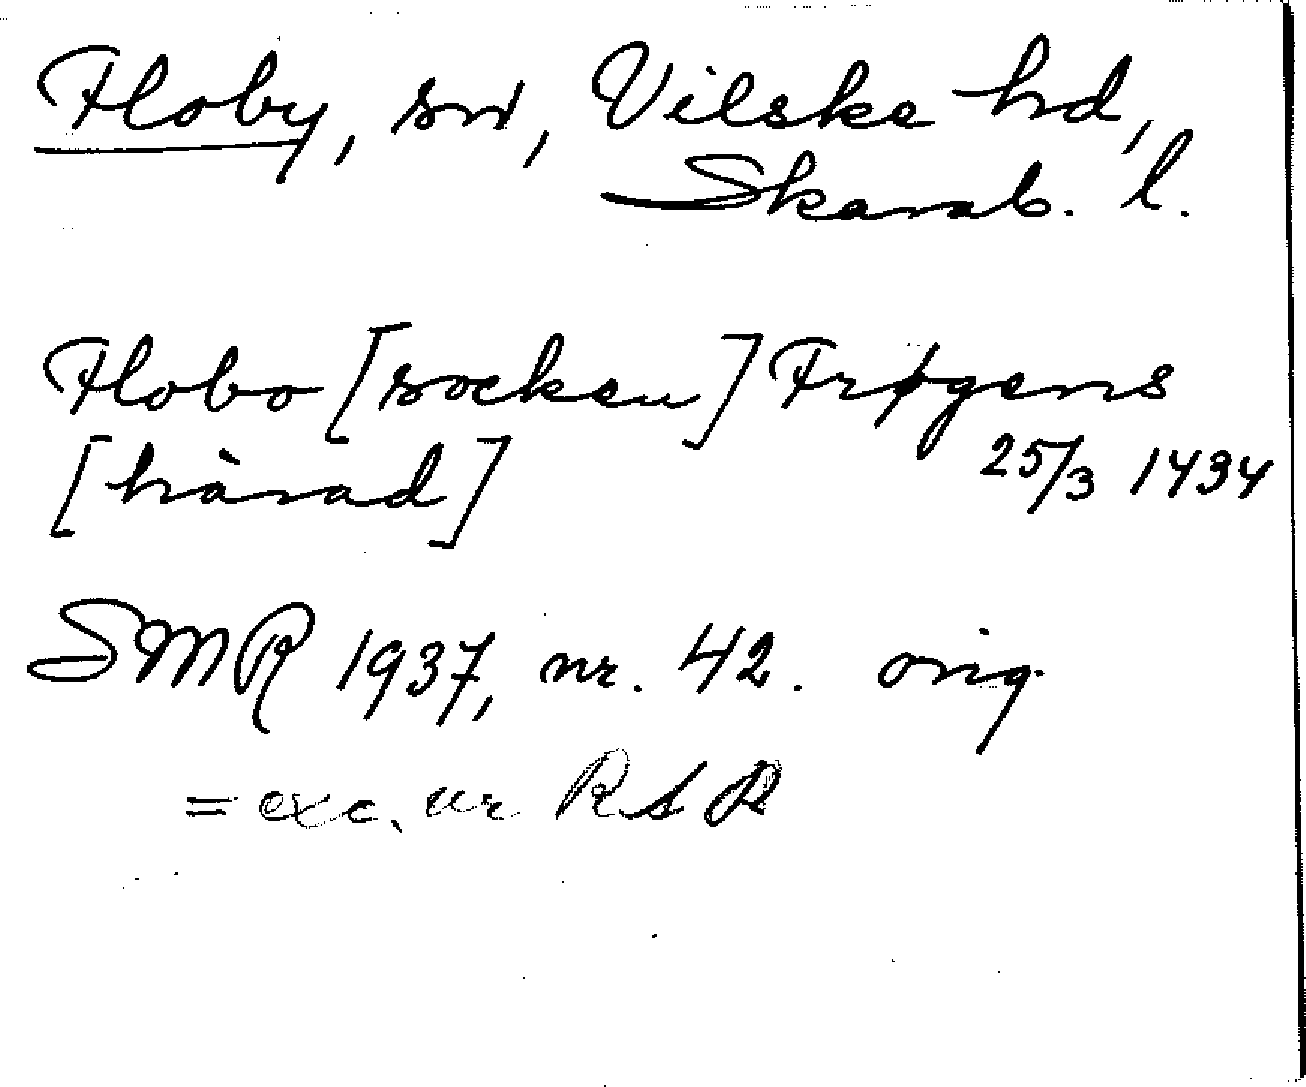 Floby, sn, Vilske hd,
Skarab. l.
Flobo [socken] Frøgens
[härad] 25/3 1434
SMR 1937, nr. 42. orig.
= exc. ur RSR